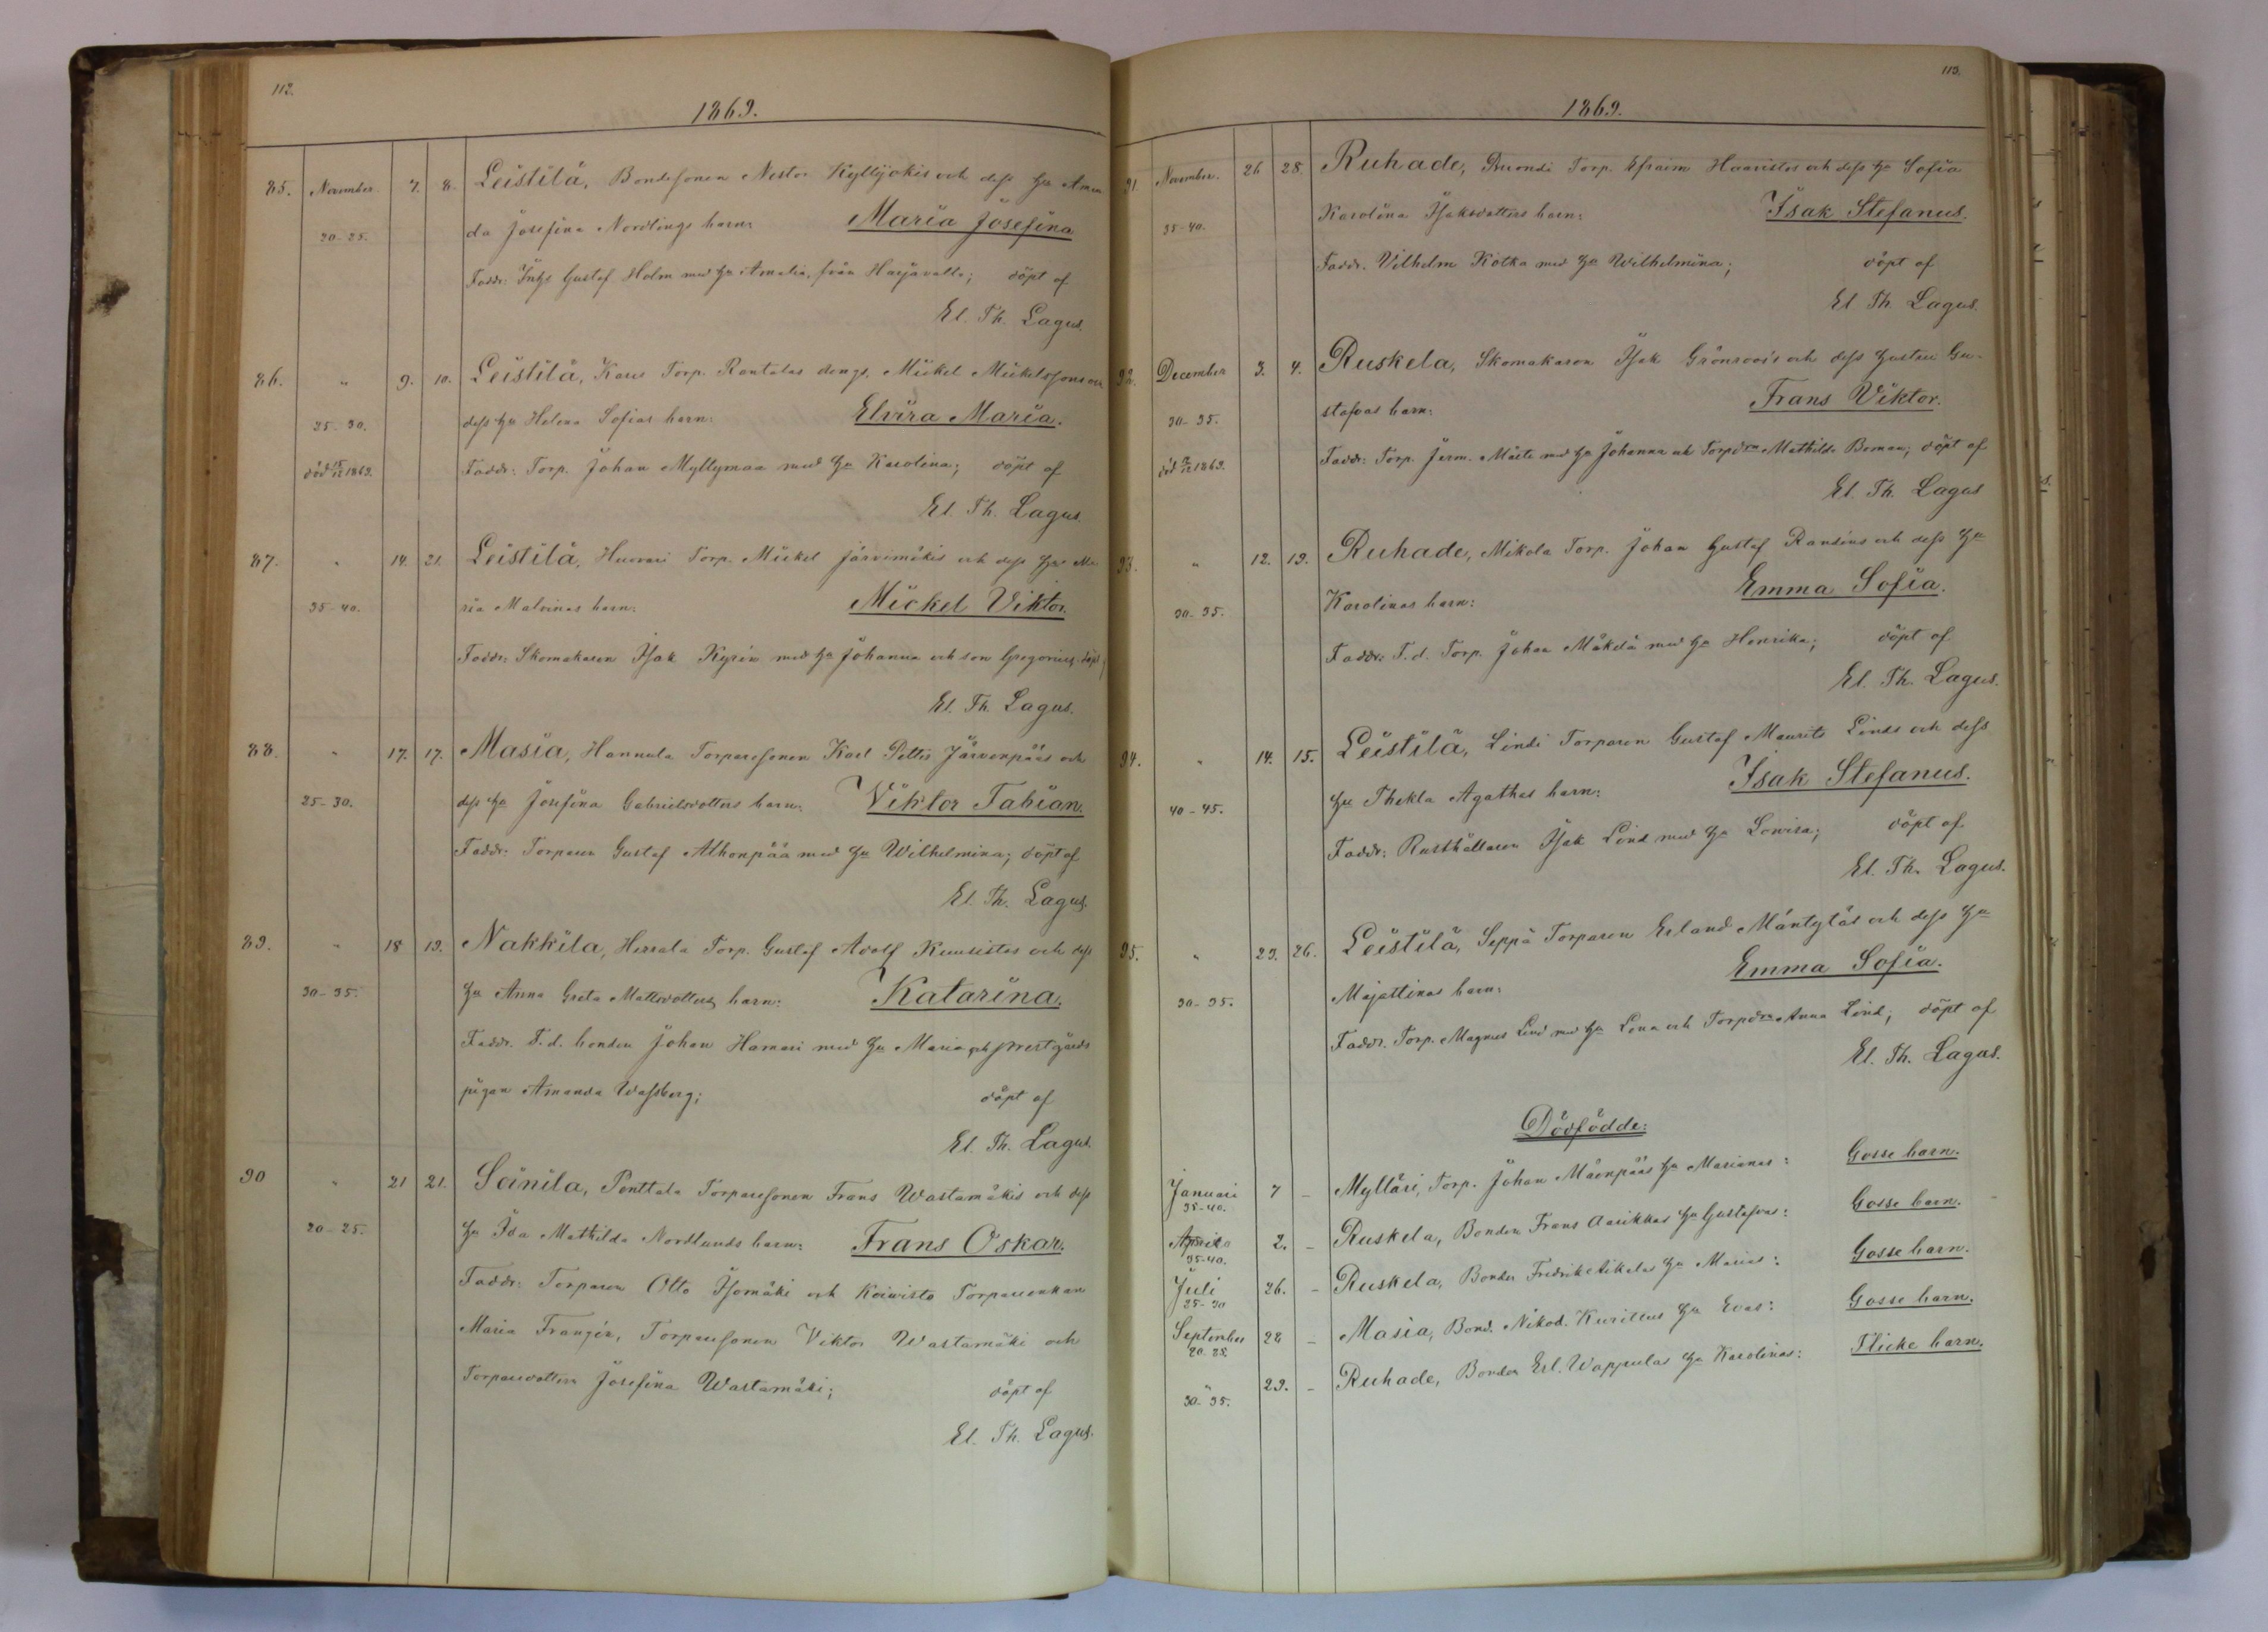 112.
1869.
85. November 7. 8. Leistilä, Bondesonen Nestor Kyllijokis och dess hu Aman
30-25. da Josefina Nordlings barn: Maria Josefina
Faddr: Inhs Gustaf Holm med hu Amalia, från Harjavalta; döpt af
El. Th. Lagus.
86. " 9. 10. Leistilä, Karis Torp. Rantalas drengs, Mickel Mickelssons och
25-30. dess hu Helena Sofias barn: Elvira Maria.
död 15/12 1869. Faddr: Torp. Johan Myllymaa med hu Karolina; döpt af
El. Th. Lagus.
87. " 14. 21. Leistilä, Huovari Torp. Mickel Järvimäkis och dess hu Ma
35-40. ria Malvinas barn: Mickel Viktor.
Faddr: Skomakaren Isak Kyrén med hu Johanna och son Gregorius, döpt af
El. Th. Lagus.
88. " 17. 17. Masia, Hannula Torparesonen Karl Petter Järvenpääs och
25-30. dess hu Josefina Gabrielsdotters barn: Viktor Fabian.
Faddr: Torparen Gustaf Alhonpää med hu Wilhelmina; döpt af
El. Th. Lagus.
89. " 18 19. Nakkila, Herrala Torp. Gustaf Adolf Kuusistos och dess
30-35. hu Anna Greta Mattsdotters barn: Katarina.
Faddr. F.d. bonden Johan Hamari med hu Maria och prestgårds
pigan Amanda Wassberg; döpt af
El. Th. Lagus.
90 " 21 21. Soinila, Penttala Torparesonen Frans Wastamäkis och dess
20-25. hu Ida Mathilda Nordlunds barn: Frans Oskar.
Faddr: Torparen Otto Isomäki och Koivisto Torpareenkan
Maria Franzén, Torparesonen Viktor Wastamäki och
Torparedottern Josefina Wastamäki; döpt af
El. Th. Lagus.
113.
1869.
91. November. 26 28. Ruhade, Torp. Efraim Haavistos och dess hu Sofia
35-40. Karolina Isaksdotters barn: Isak Stefanus.
Faddr. Vilhelm Kotka med hu Wilhelmina; döpt af
El. Th. Lagus.
92. December 3. 4. Ruskela, Skomakaren Isak Grönroos's och dess hustru Gu-
30-35. stafvas barn: Frans Viktor.
död 12/12 1869. Faddr: Torp. Jerm. Mäite med hu Johanna och Torpdrn Mathilda Boman; döpt af
El. Th. Lagus
93. " 12. 13. Ruhade, Mikola Torp. Johan Gustaf Ransius och dess hu
30-35. Karolinas barn: Emma Sofia.
Faddr: F.d. Torp. Johan Mäkelä med hu Henrika; döpt af
El. Th. Lagus.
94. " 14. 15. Leistilä, Lindi Torparen Gustaf Maurits Linds och dess
40-45. hu Thekla Agathas barn: Isak Stefanus.
Faddr: Rusthållaren Isak Lind med hu Lovisa; döpt af
El. Th. Lagus.
95. " 23. 26. Leistilä, Seppä Torparen Erland Mäntyläs och dess hu
30-35. Majastinas barn: Emma Sofia.
Faddr. Torp. Magnus Lind med hu Lena och Torpdrn Anna Lind; döpt af
El. Th. Lagus.
Dödfödde:
Januari 7 - Mylläri, Torp. Johan Mäenpääs hu Marianas: Gosse barn.
35-40.
Aprill 2. - Ruskela, Bonden Frans Aarikkas hu Gustafvas: Gosse barn.
35-40.
Juli 26. - Ruskela, Bonden Fredrik Aikalas hu Marias: Gosse barn.
25-30
September 28 - Masia, Bond. Nikod. Kurittus hu Evas: Gosse barn.
20-25.
" 29. - Ruhade, Bonden Erl. Wappulas hu Karolinas: Flicke barn.
30-35.